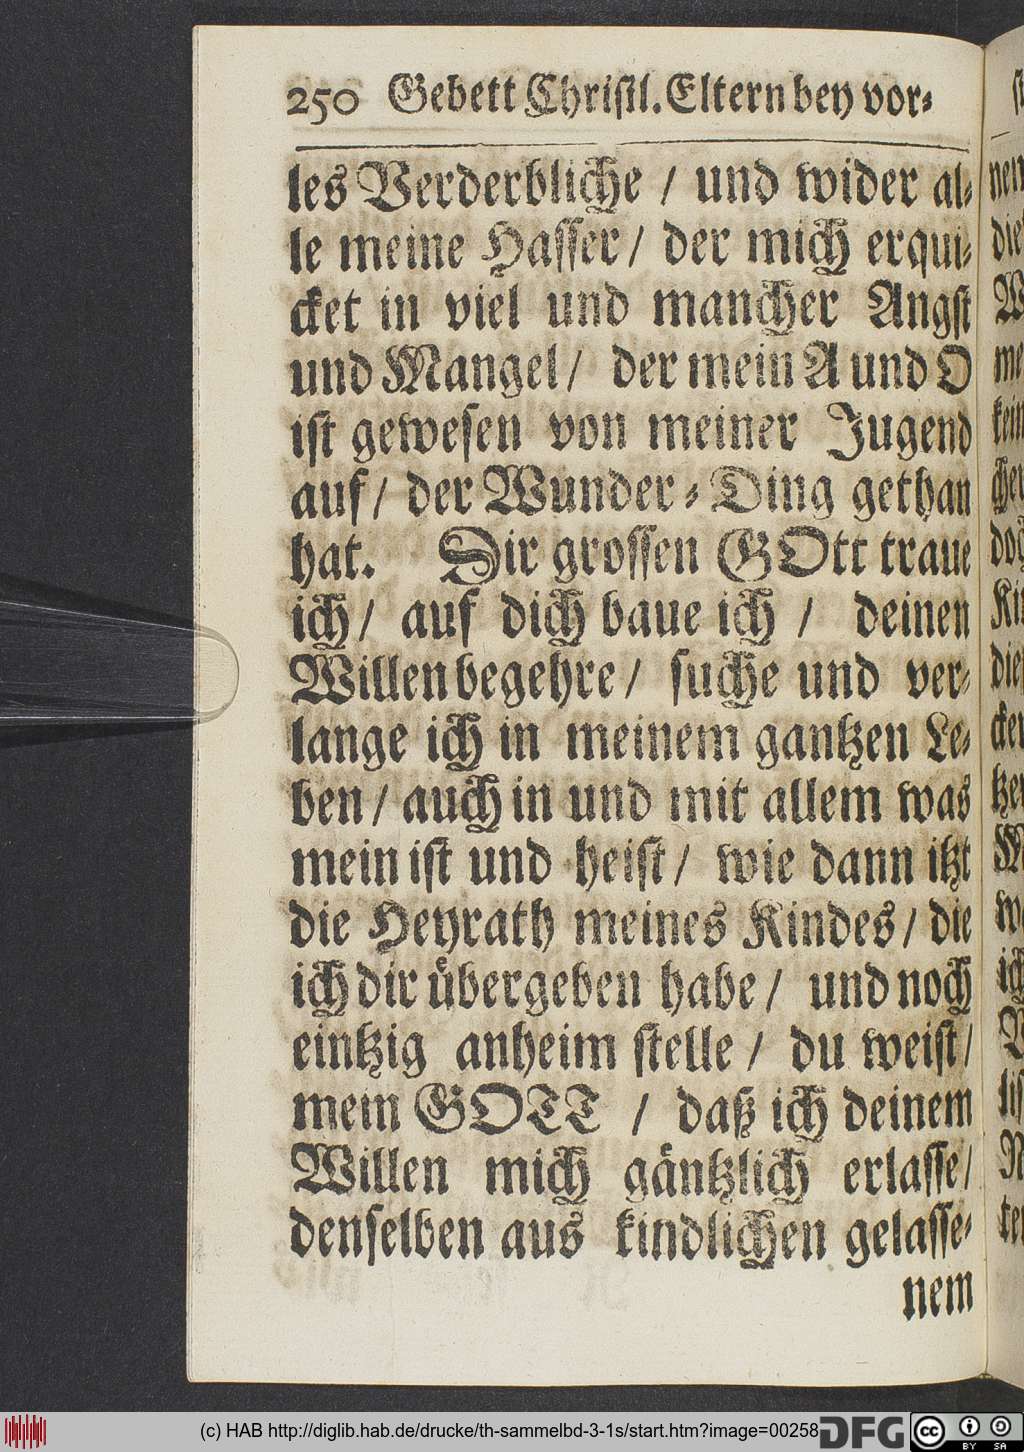 250 Gebett Christl. Eltern bey vor⸗
les Verderbliche / und wider al⸗
le meine Hasser / der mich erqui⸗
cket in viel und mancher Angst
und Mangel / der mein A und O
ist gewesen von meiner Jugend
auf / der Wunder⸗Ding gethan
hat. Dir grossen GOtt traue
ich / auf dich baue ich / deinen
Willen begehre / suche und ver⸗
lange ich in meinem gantzen Le⸗
ben / auch in und mit allem was
mein ist und heist / wie dann itzt
die Heyrath meines Kindes / die
ich dir übergeben habe / und noch
eintzig anheim stelle / du weist /
mein GOTT / daß ich deinem
Willen mich gäntzlich erlasse /
denselben aus kindlichen gelasse⸗
nem
(c) HAB http://diglib.hab.de/drucke/th-sammelbd-3-1s/start.htm?image=00258
DFG
cc BY SA